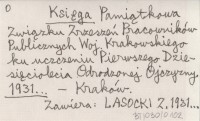 0
Księga Pamiątkowa
Związku Zrzeszeń Pracowników
Publicznych Woj. Krakowskiego
ku uczczeniu Pierwszego Dzie-
sięciolecia Odrodzonej Ojczyzny.
1931... – Kraków.
Zawiera: LASOCKI Z, 1931...